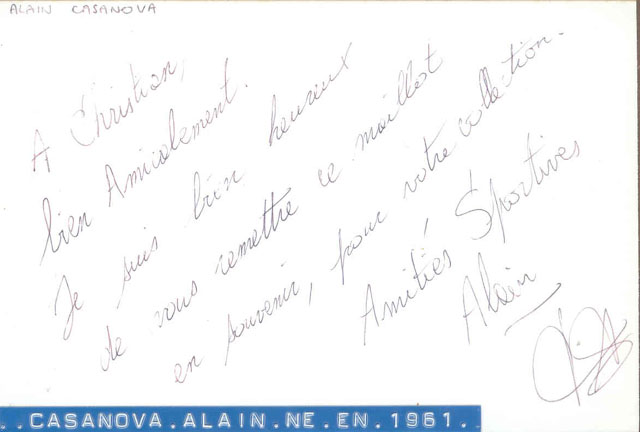 ALAIN CASANOVA
A Christian,
bien Amicalement.
Je suis bien heureux
de vous remettre ce maillot
en souvenir, pour votre collection.
Amitiés Sportives
Alain
..CASANOVA.ALAIN.NE.EN.1961..